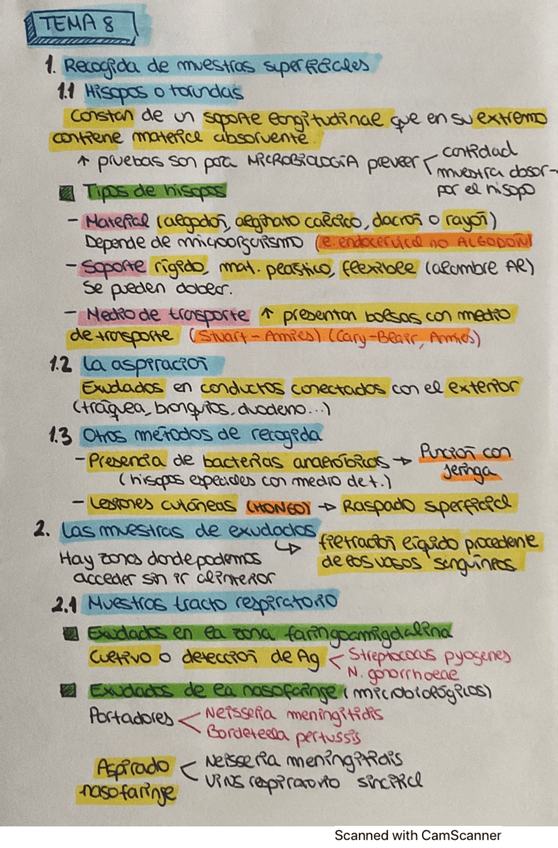 TEMA 8
1. Recogida de muestras superficiales
1.1 Hisopos o torundas
Constan de un soporte longitudinal que en su extremo
contiene material absorvente.
↑ pruebas son para MICROBIOLOGIA preveer < cantidad
muestra absor-
por el hisopo
Tipos de hisopos
- Material (algodón, alginato cálcico, dacron o rayon)
Depende de microorganismo (e. endocervical no ALGODON)
- Soporte rígido, mat. plastico, flexible (alambre Al)
Se pueden doblar.
- Medio de transporte ↑ presentan bolsas con medio
de transporte (Stuart-Amies) (Cary-Blair, Amies)
1.2 La aspiración
Exudados en conductos conectados con el exterior
(tráquea, bronquios, duodeno...)
1.3 Otros métodos de recogida
- Presencia de bacterias anaeróbicas → Punción con
jeringa
(hisopos especiales con medio de t.)
- Lesiones cutáneas (HONGO) → Raspado superficial
2. Las muestras de exudados
↳ filtración líquido procedente
de los vasos sanguíneos
Hay zonas donde podemos
acceder sin ir al interior
2.1 Muestras tracto respiratorio
Exudados en la zona faringoamigdalina
Cultivo o detección de Ag < Streptococus pyogenes
N. gonorrhoeae
Exudados de la nasofaringe (microbiológicos)
Portadores < Neisseria meningitidis
Bordetella pertussis
Aspirado
nasofaringe < Neisseria meningitidis
Virus respiratorio sincitial
Scanned with CamScanner